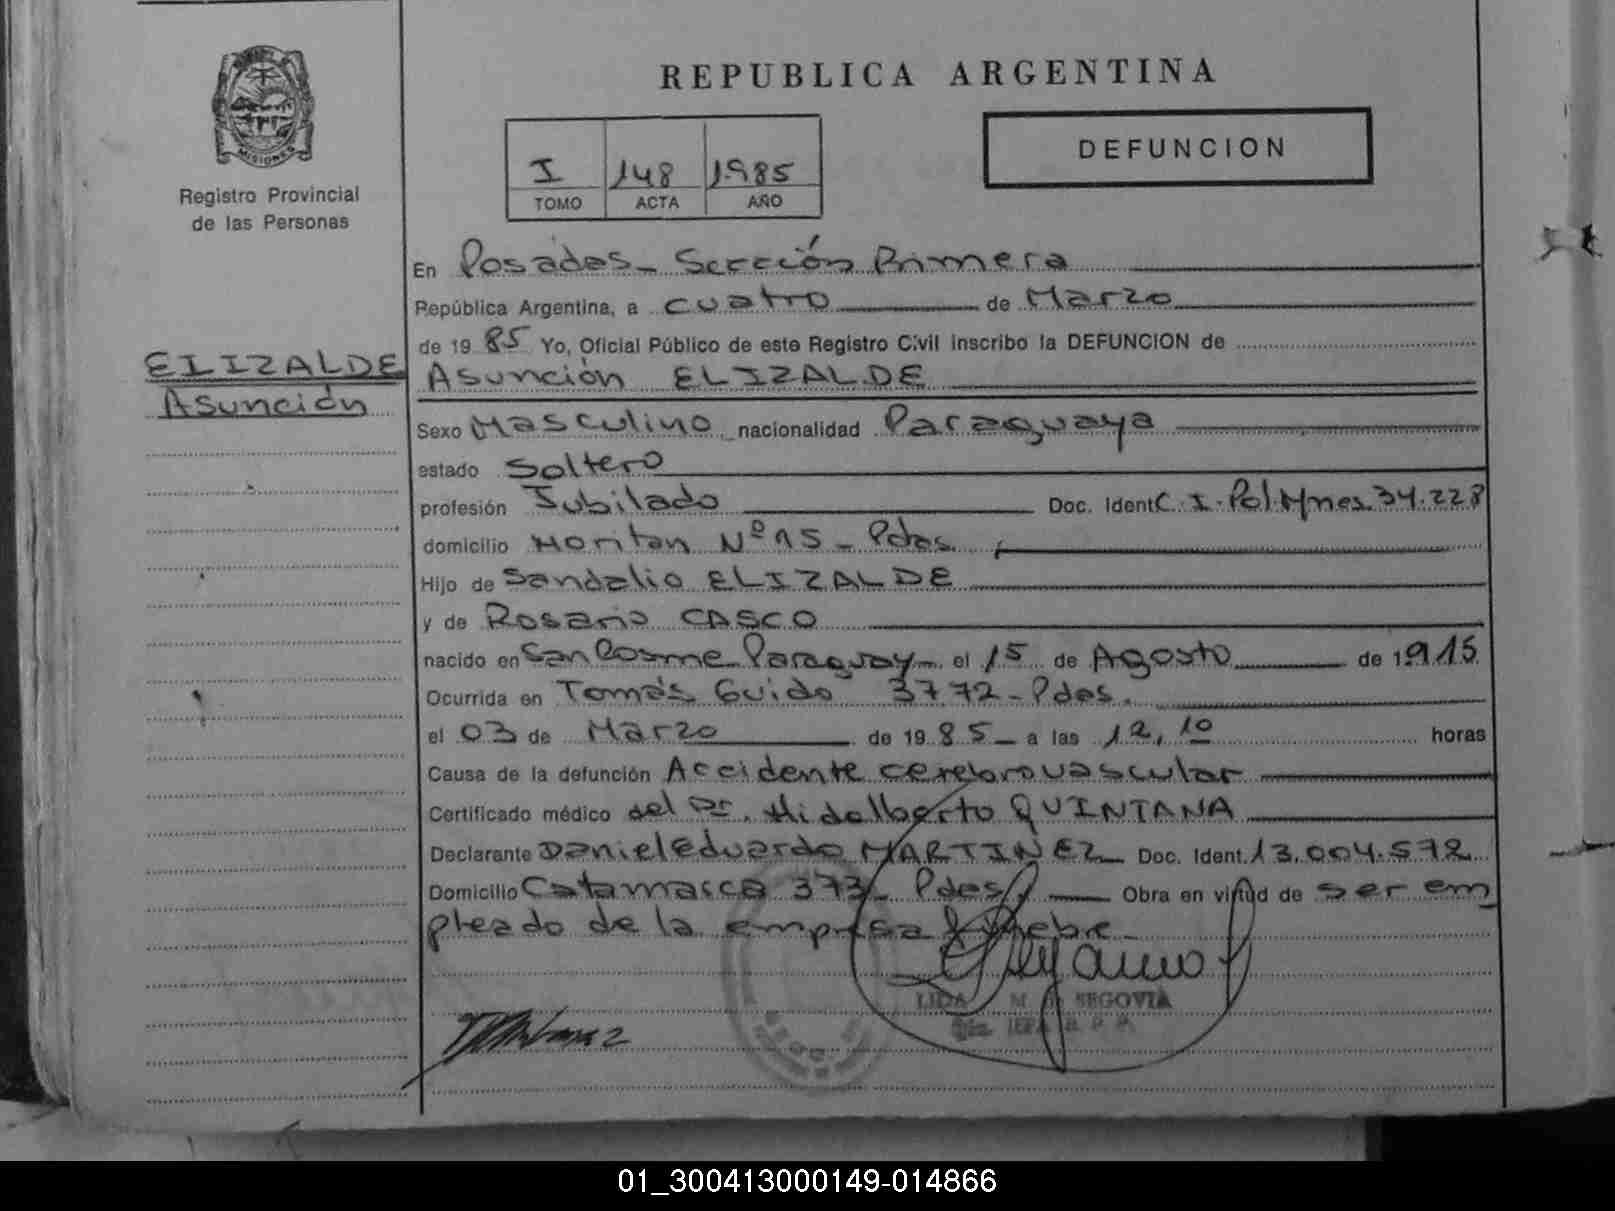 MISIONES
Registro Provincial
de las Personas
REPUBLICA ARGENTINA
I 148 1985
TOMO ACTA AÑO
DEFUNCION
ELIZALDE
Asunción
En Posadas - Sección Primera
República Argentina, a cuatro de Marzo
de 1985 Yo, Oficial Público de este Registro Civil inscribo la DEFUNCION de
Asunción ELIZALDE
Sexo Masculino nacionalidad Paraguaya
estado Soltero
profesión Jubilado Doc. Ident. C. I. Pol. Mnes. 34.228
domicilio Moritan Nº 15 - Pdas.
Hijo de Sandalio ELIZALDE
y de Rosario CASCO
nacido en San Cosme Paraguay - el 15 de Agosto de 1915
Ocurrida en Tomás Guido 3772 - Pdas.
el 03 de Marzo de 1985 - a las 12,10 horas
Causa de la defunción Accidente cerebrovascular
Certificado médico del Dr. Hidalberto QUINTANA
Declarante Daniel Eduardo MARTINEZ Doc. Ident. 13.004.572
Domicilio Catamarca 373 - Pdas. Obra en virtud de ser em
pleado de la empresa fúnebre -
LIDA M SEGOVIA
R. P. P.
01_300413000149-014866